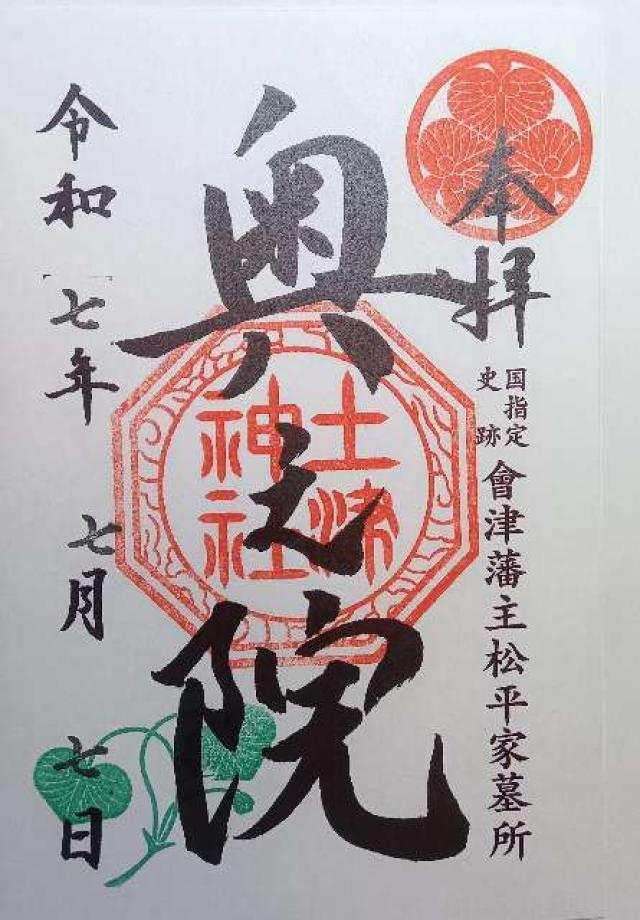 奉拝
国指定
史跡
會津藩主松平家墓所
奥之院
土津
神社
令和七年七月七日